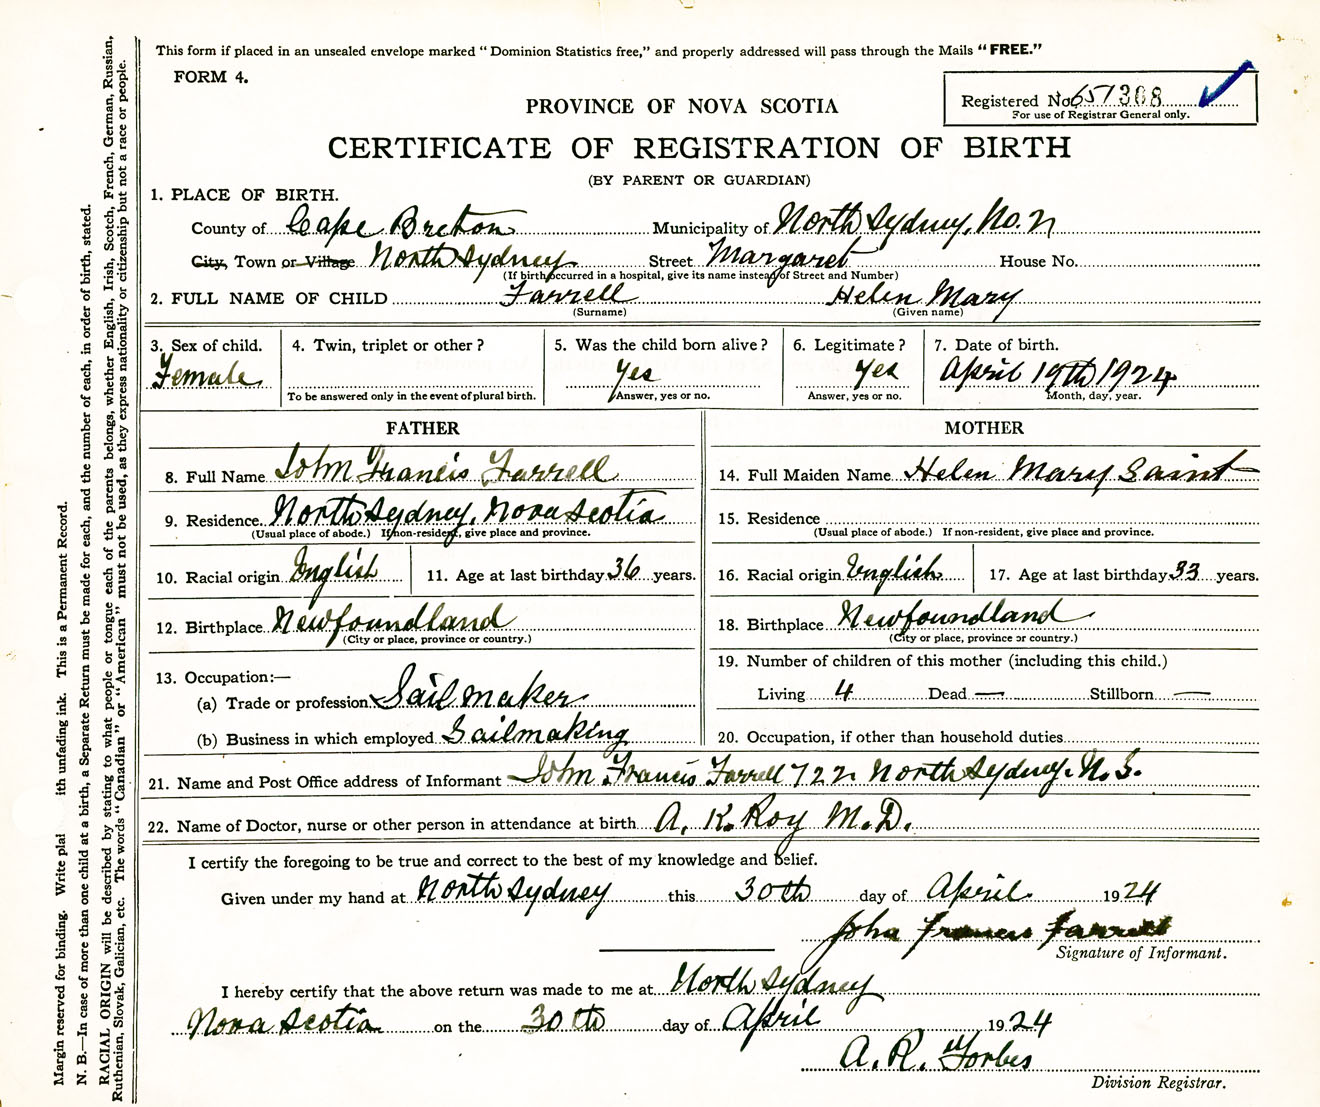 This form if placed in an unsealed envelope marked "Dominion Statistics free," and properly addressed will pass through the Mails "FREE."
FORM 4.
Registered No. 657308
For use of Registrar General only.
PROVINCE OF NOVA SCOTIA
CERTIFICATE OF REGISTRATION OF BIRTH
(BY PARENT OR GUARDIAN)
1. PLACE OF BIRTH.
County of Cape Breton Municipality of North Sydney, No. 2
City, Town or Village North Sydney Street Margaret House No.
(If birth occurred in a hospital, give its name instead of Street and Number)
2. FULL NAME OF CHILD Farrell Helen Mary
(Surname) (Given name)
3. Sex of child. 4. Twin, triplet or other? 5. Was the child born alive? 6. Legitimate? 7. Date of birth.
Female Yes Yes April 19th 1924
To be answered only in the event of plural birth. Answer, yes or no. Answer, yes or no. Month, day, year.
FATHER
8. Full Name John Francis Farrell
9. Residence. North Sydney, Nova Scotia
(Usual place of abode.) If non-resident, give place and province.
10. Racial origin English 11. Age at last birthday 36 years.
12. Birthplace Newfoundland
(City or place, province or country.)
13. Occupation:—
(a) Trade or profession Sail maker
(b) Business in which employed Sailmaking
MOTHER
14. Full Maiden Name Helen Mary Saint
15. Residence
(Usual place of abode.) If non-resident, give place and province.
16. Racial origin English 17. Age at last birthday 33 years.
18. Birthplace Newfoundland
(City or place, province or country.)
19. Number of children of this mother (including this child.)
Living 4 Dead — Stillborn —
20. Occupation, if other than household duties
21. Name and Post Office address of Informant John Francis Farrell 722 North Sydney. N. S.
22. Name of Doctor, nurse or other person in attendance at birth A. K. Roy M.D.
I certify the foregoing to be true and correct to the best of my knowledge and belief.
Given under my hand at North Sydney this 30th day of April 1924
John Francis Farrell
Signature of Informant.
I hereby certify that the above return was made to me at North Sydney
Nova Scotia on the 30th day of April 1924
A. R. Forbes
Division Registrar.
Margin reserved for binding. Write plai ith unfading ink. This is a Permanent Record.
N. B.—In case of more than one child at a birth, a Separate Return must be made for each, and the number of each, in order of birth, stated.
RACIAL ORIGIN will be described by stating to what people or tongue each of the parents belongs, whether English, Irish, Scotch, French, German, Russian,
Ruthenian, Slovak, Galician, etc. The words "Canadian" or "American" must not be used, as they express nationality or citizenship but not a race or people.